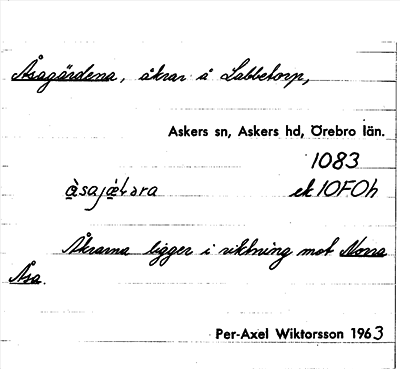 Åsagärdena, åkrar å Labbetorp,
Askers sn, Askers hd, Örebro län.
1083
ek 10F0h
Åkrarna ligger i riktning mot Norra
Åsa.
Per-Axel Wiktorsson 1963